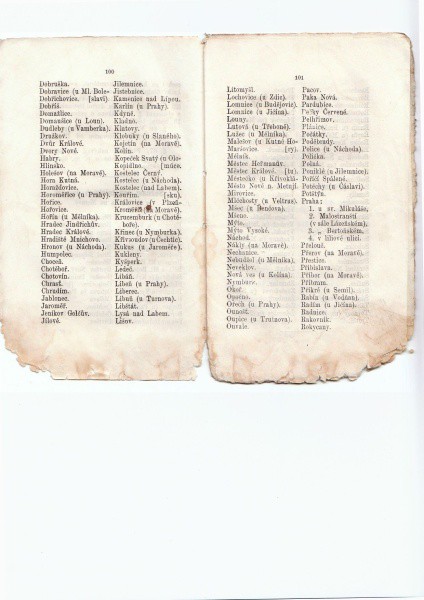 100
Dobruška.
Dobravice (u Ml. Bole-
Dobřichovice. [slavi)
Dobříš.
Domažlice.
Domanšice (u Loun).
Dudleby (u Vamberka).
Dražkov.
Dvůr Králové.
Dvory Nové.
Habry.
Hlinsko.
Holešov (na Moravě).
Hora Kutná.
Horažďovice.
Horoměřice (u Prahy).
Hořice.
Hořovice.
Hořín (u Mělníka).
Hradec Jindřichův.
Hradec Králové.
Hradiště Mnichovo.
Hronov (u Náchoda).
Humpolec.
Choceň.
Chotěboř.
Chotovin.
Chrast.
Chrudim.
Jablonec.
Jaroměř.
Jenikov Golčův.
Jílové.
Jilemnice.
Jistebnice.
Kamenice nad Lipou.
Karlín (u Prahy).
Kdyně.
Kladno.
Klatovy.
Klobuky (u Slaného).
Kojetín (na Moravě).
Kolín.
Kopeček Svatý (u Olo-
Kopidlno. [múce.
Kostelec Černý.
Kostelec (u Náchoda).
Kostelec (nad Labem).
Kouřim. [sku)
Královice (v Plzeň-
Kroměříž (na Moravě).
Krucemburk (u Chotě-
boře).
Křinec (u Nymburka).
Křivsoudov (u Čechtic).
Kukus (u Jaroměře).
Kukleny.
Kyšperk.
Ledeč.
Libáň.
Libeň (u Prahy).
Liberec.
Libuň (u Turnova).
Libštát.
Lysá nad Labem.
Lišov.
101
Litomyšl.
Lochovice (u Zdic).
Lomnice (u Budějovic).
Lomnice (u Jičína).
Louny.
Lutová (u Třeboně).
Lužec (u Mělníka).
Malešov (u Kutné Ho-
Maršovice. [ry).
Mělník.
Městec Heřmanův.
Městec Králové. [tu)
Městečko (u Křivoklá-
Město Nové n. Metují.
Mirovice.
Mlčehosty (u Veltrus).
Mšec (u Benčova).
Mšeno.
Mýto.
Mýto Vysoké.
Náchod.
Nákly (na Moravě).
Nechanice.
Nebužel (u Mělníka).
Neveklov.
Nová ves (u Kolína).
Nymburk.
Okoř.
Opočno.
Ořech (u Prahy).
Ounošť.
Oupice (u Trutnova).
Ouvale.
Pacov.
Paka Nová.
Pardubice.
Pečky Červené.
Pelhřimov.
Plánice.
Počátky.
Poděbrady.
Police (u Náchoda).
Polička.
Polná.
Poniklé (u Jilemnice).
Poříčí Spálené.
Potěchy (u Čáslavi).
Potštýn.
Praha:
1. u sv. Mikuláše,
2. Malostranští
(v sále Lázeňském)
3. „ Bertoňském,
4. v Jiljové ulici.
Přelouč.
Přerov (na Moravě).
Přeštice.
Přibislava.
Příbor (na Moravě).
Příbram.
Příkré (u Semil).
Rabín (u Vodňan).
Radim (u Jičína).
Radnice.
Rakovník.
Rokycany.